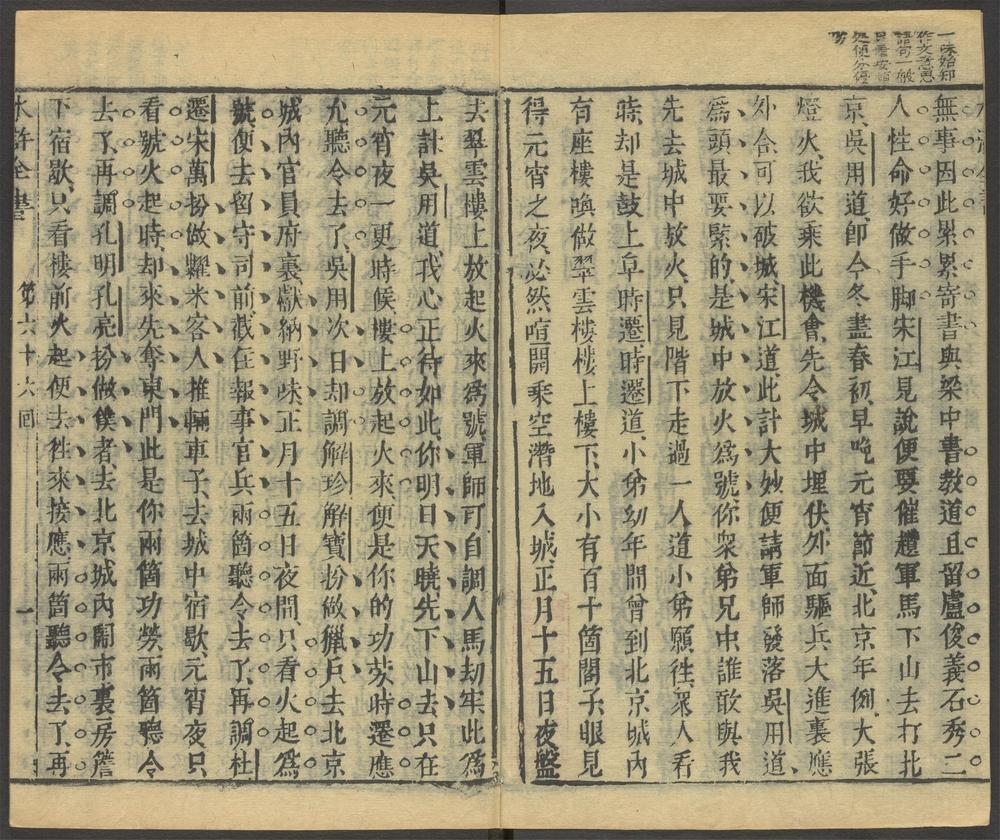 一味始知
作文意思
語句一般
只看安頓
處便分優
劣
無事因此累累寄書與梁中書教道且留盧俊義石秀二
人性命好做手脚宋江見說便要催趲軍馬下山去打北
京吳用道即今冬盡春初早晚元宵節近北京年例大張
燈火我欲乘此機會先令城中埋伏外面驅兵大進裏應
外合可以破城宋江道此計大妙便請軍師發落吳用道
爲頭最要緊的是城中放火爲號你衆弟兄中誰敢與我
先去城中放火只見階下走過一人道小弟願往衆人看
時却是鼓上皁時遷時遷道小弟幼年間曾到北京城內
有座樓喚做翠雲樓樓上樓下大小有百十箇閣子眼見
得元宵之夜必然喧鬨乘空潛地入城正月十五日夜盤
去翠雲樓上放起火來爲號軍師可自調人馬刼牢此爲
上計吳用道我心正待如此你明日天曉先下山去只在
元宵夜一更時候樓上放起火來便是你的功勞時遷應
允聽令去了吳用次日却調解珍解寶扮做獵戶去北京
城內官員府裏獻納野味正月十五日夜間只看火起爲
號便去留守司前截住報事官兵兩箇聽令去了再調杜
遷宋萬扮做糶米客人推輛車子去城中宿歇元宵夜只
看號火起時却來先奪東門此是你兩箇功勞兩箇聽令
去了再調孔明孔亮扮做僕者去北京城內鬧市裏房簷
下宿歇只看樓前火起便去徃來接應兩箇聽令去了再
水滸全書 第六十六回 一